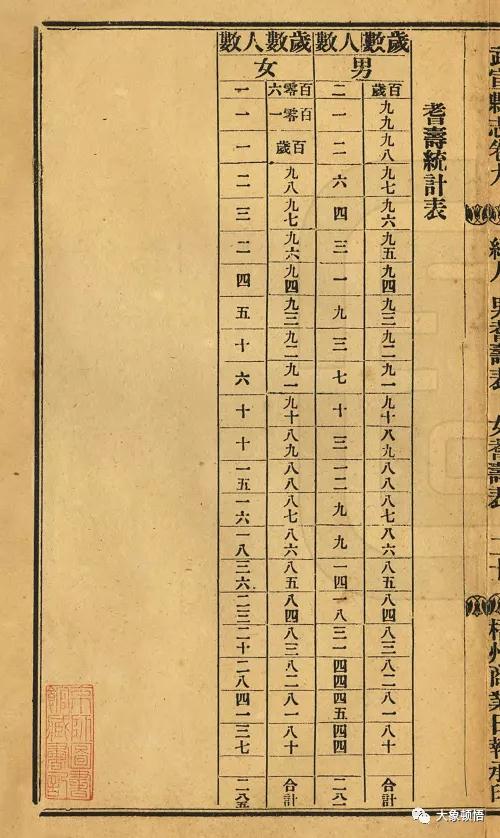 武宣縣志卷九
男耆壽表
女耆壽表
二十
梧州商業日報承印
耆壽統計表
歲數 人數 歲數 人數
男 女
百歲 九九 九八 九七 九六 九五 九四 九三 九二 九一 九十 八九 八八 八七 八六 八五 八四 八三 八二 八一 八十 合計
二 一 二 六 四 三 一 九 三 七 十 三 一二 九 九 一四 一八 三一 四四 四五 四四 二八一
百零六 百零一 百歲 九八 九七 九六 九四 九三 九二 九一 九十 八九 八八 八七 八六 八五 八四 八三 八二 八一 八十 合計
一 一 一 二 三 二 四 五 十 六 十 十 一五 一六 一八 三六 二三 二十 二八 四一 三七 二八五
大象顿悟